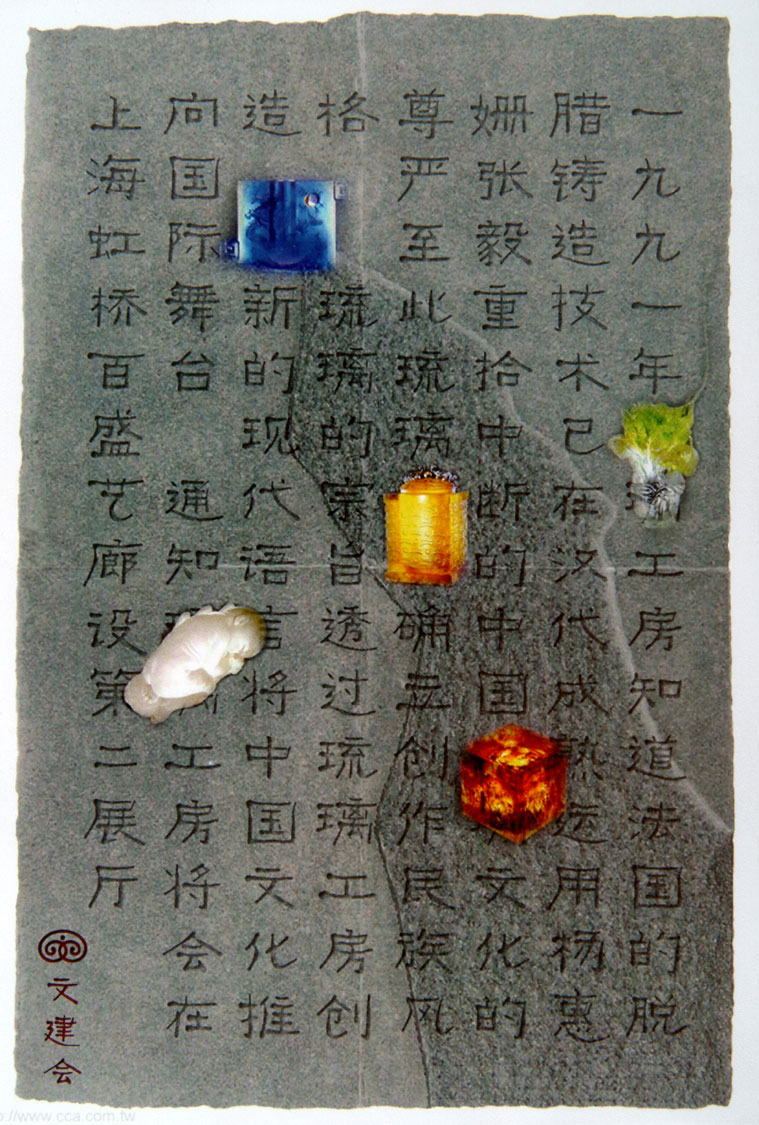 一九九一年 工房知道法国的脱
腊铸造技术已在汉代成熟运用杨惠
姗张毅重拾中断的中国 文化的
尊严至此琉璃 确立创作民族风
格 琉璃的宗旨透过琉璃工房创
造 新的现代语言将中国文化推
向国际舞台 通知 工房将会在
上海虹桥百盛艺廊设第二展厅
文建会
p://www.cca.com.tw